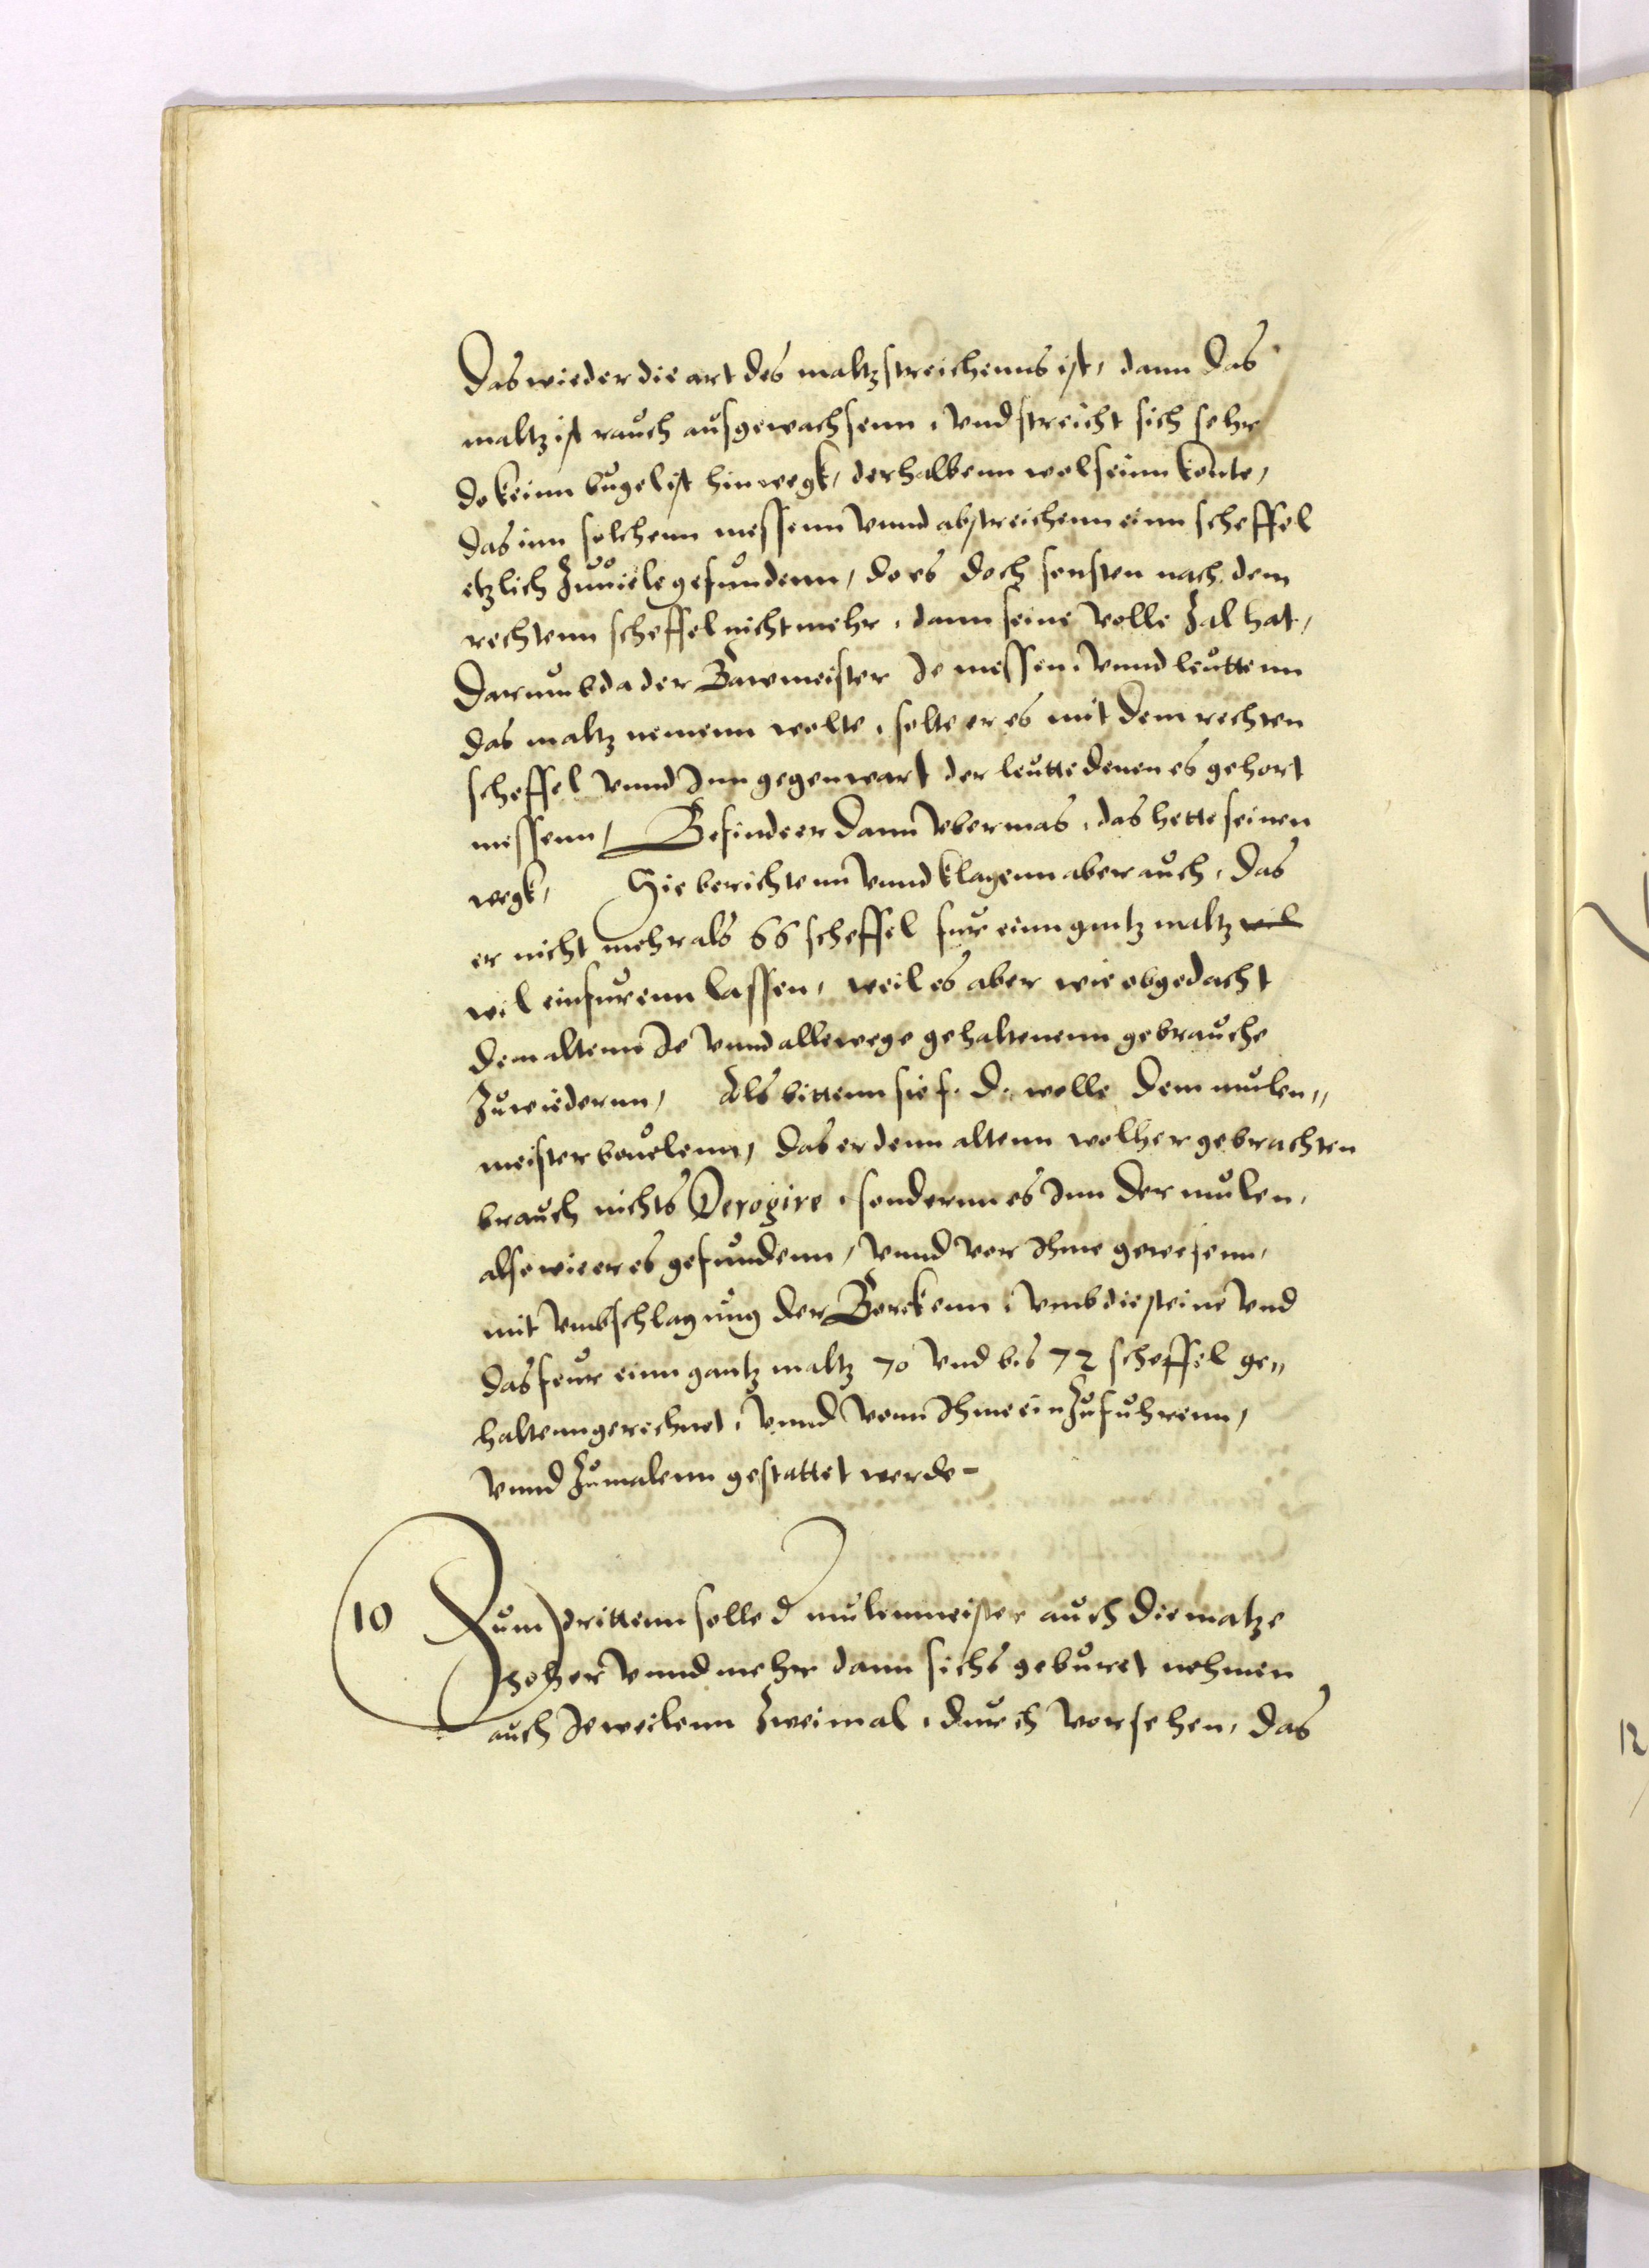 Das wieder die art des maltzstreichenns ist, dann das
maltz ist rauch ausgewachsenn, vnd streicht sich sehr
do keinn bugel ist hinwegk, derhalbenn wol seinn konte,
das inn solchenn messenn vnnd abstreichenn einn scheffel
etzlich zuuiele gefundenn, do es doch sonsten nach dem
rechtenn scheffel nicht mehr, dann seine volle zal hat,
Darumb da der Bawmeister Je messen, vnnd leuttenn
das maltz nemenn wolte, solte er es mit dem rechten
scheffel vnnd Inn gegenwart der leutte denen es gehort
messenn, Befinde er dann vbermas, das hette seinen
wegk, Hie berichtenn vnnd klagenn aber auch, das
er nicht mehr als 66 scheffel fur einn gantz maltz wil
wil einfurenn lassen, weil es aber wie obgedacht
dem altenn Je vnnd allewege gehaltenenn gebrauche
zuwiedernn, Als bittenn sie f. D. wolle dem mulen„
meister beuelenn, das er denn altenn wolhergebrachten
brauch nichts Derogire, sondernn es Inn der mulen,
also wie er es gefundenn, vnnd vor Ihme gewesenn,
mit vmbschlagung der Borckenn, vmb die steine vnd
das feur einn gantz maltz 70 vnd bis 72 scheffel ge„
haltenn gerechnet, vnnd vonn Ihme ein zufuhrenn,
vnnd zumalenn gestattet werde-
10 Zum drittenn solle d mulenmeister auch die matze
hoher vnnd mehr dann sichs geburet nehmen
auch Jeweilenn zweimal, durch vorsehen, das
12